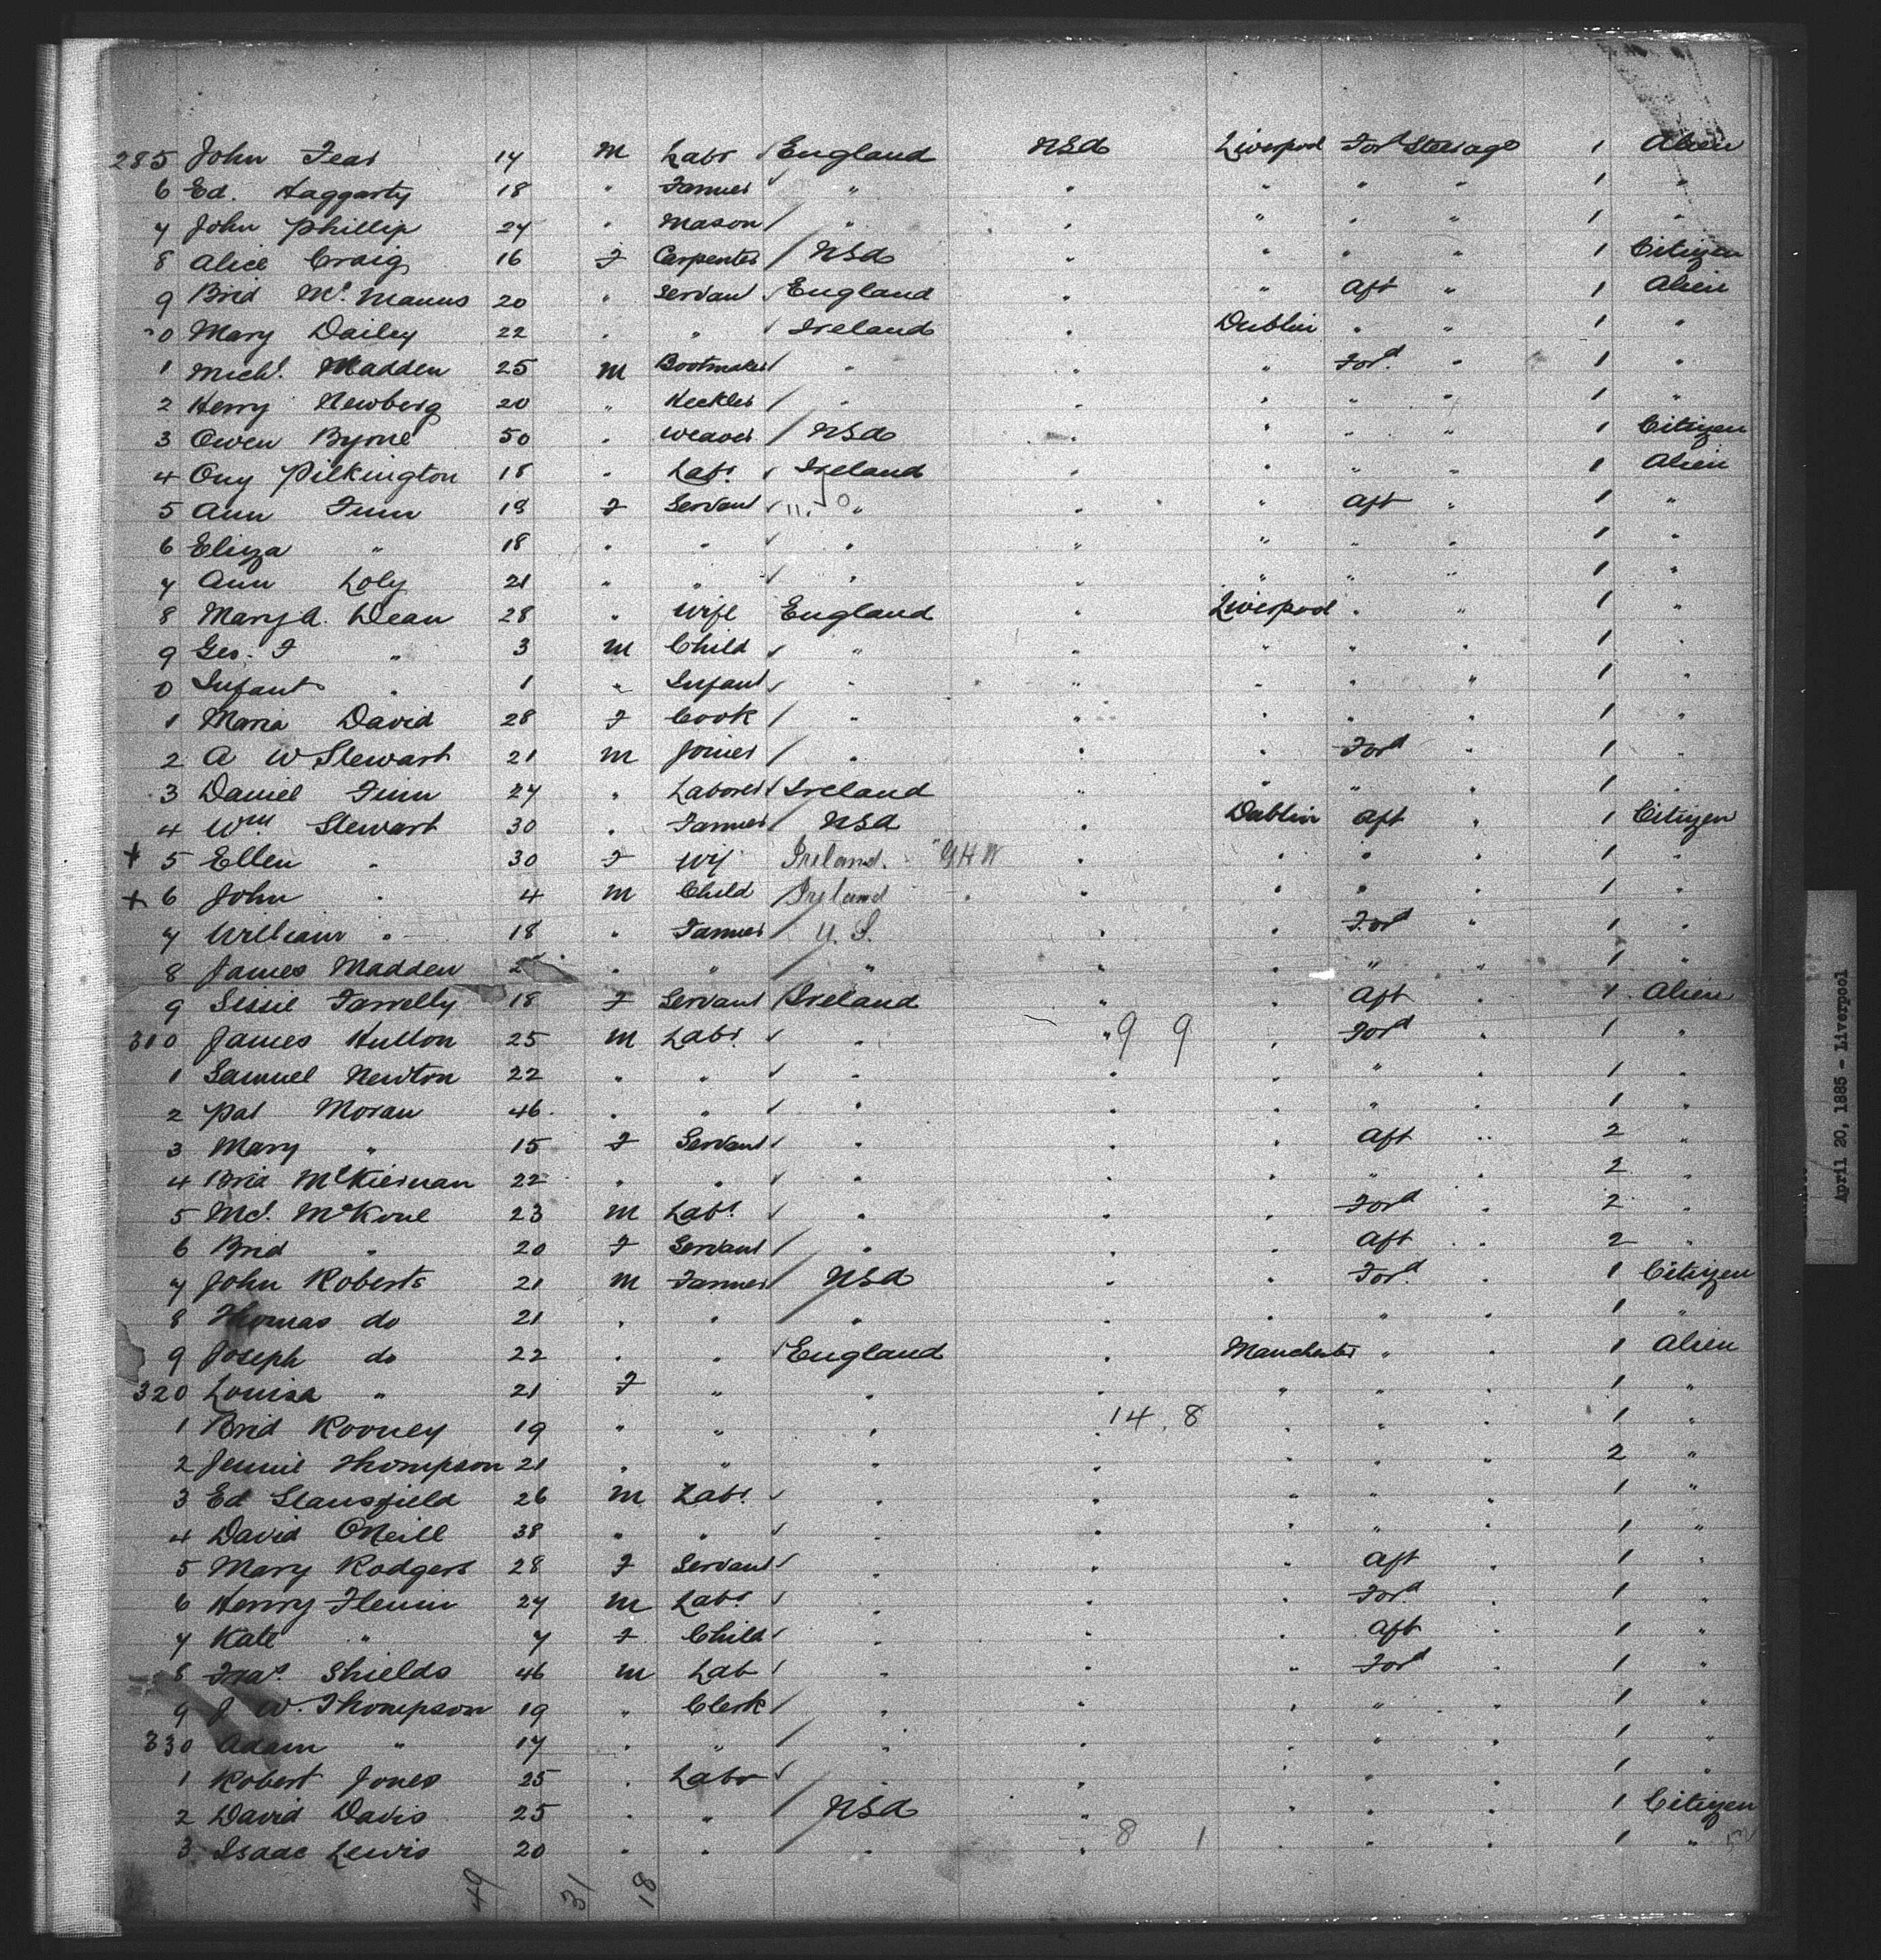 285 John Fear 17 M Labr / England USA Liverpool Ford Steerage 1 Alien
6 Ed. Haggarty 18 " Farmer " " " " " 1 "
7 John Phillip 27 " Mason / " " " " " 1 "
8 Alice Craig 16 F Carpenter / USA " " " " 1 Citizen
9 Brid McManus 20 " Servant / England " " Aft " 1 Alien
0 Mary Dailey 22 " " / Ireland " Dublin " " 1 "
1 Michl. Madden 25 M Bootmaker / " " " Ford. " 1 "
2 Henry Newberg 20 " Heckler / " " " " " 1 "
3 Owen Byrne 50 " Weaver / USA " " " " 1 Citizen
4 Guy Pilkington 18 " Labr. / Ireland " " " " 1 Alien
5 Ann Finn 19 F Servant / " " " Aft " 1 "
6 Eliza " 18 " " / " " " " " 1 "
7 Ann Loly 21 " " / " " " " " 1 "
8 Mary A. Dean 28 " Wife England " Liverpool " " 1 "
9 Geo. F " 3 M Child / " " " " " 1 "
0 Infant " 1 " Infant / " " " " " 1 "
1 Maria David 28 F Cook / " " " " " 1 "
2 A W Stewart 21 M Joiner / " " " Ford " 1 "
3 Daniel Finn 27 " Laborer / Ireland " " " " 1 "
4 Wm Stewart 30 " Farmer / USA " Dublin Aft " 1 Citizen
+ 5 Ellen " 30 F Wif Ireland. " " " " 1 "
+ 6 John " 4 M Child Ireland " " " " 1 "
7 William " 18 " Farmer / U.S. " " Ford " 1 "
8 James Madden " " / " " " " " 1 "
9 Sissie Farrelly 18 F Servant / Ireland " " Aft " 1 Alien
310 James Hutton 25 M Labr. / " " 9 9 " Ford " 1 "
1 Samuel Newton 22 " " / " " " " " 1 "
2 Pat Moran 46 " " / " " " " " 1 "
3 Mary " 15 F Servant / " " " Aft " 2 "
4 Brid McKiernan 22 " " / " " " " " 2 "
5 Ml. McKone 23 M Labr. / " " " Ford " 2 "
6 Brid " 20 F Servant / " " " Aft " 2 "
7 John Roberts 21 M Farmer / USA " " Ford. " 1 Citizen
8 Thomas do 21 " " / " " " " " 1 "
9 Joseph do 22 " " / England " Manchester " " 1 Alien
320 Louisa " 21 F " " " " " " 1 "
1 Brid Rooney 19 " " " 14.8 " " " 1 "
2 Jennie Thompson 21 " " " " " " " 2 "
3 Ed Stansfield 26 M Labr. / " " " " " 1 "
4 David ONeill 38 " " / " " " " " 1 "
5 Mary Rodgers 28 F Servant / " " " Aft " 1 "
6 Henry 27 M Labr / " " " Ford. " 1 "
7 Kate " 7 F Child / " " " Aft " 1 "
8 Shields 46 M Lab / " " " Ford " 1 "
9 J W. Thompson 19 " Clerk / " " " " " 1 "
330 Adam " 17 " " / " " " " " 1 "
1 Robert Jones 25 " Labr / " " " " " 1 "
2 David Davis 25 " " / USA " " " " 1 Citizen
3 Isaac Lewis 20 " " / " " 8 1 " " " 1 "
49 31 18
April 20, 1885 - Liverpool